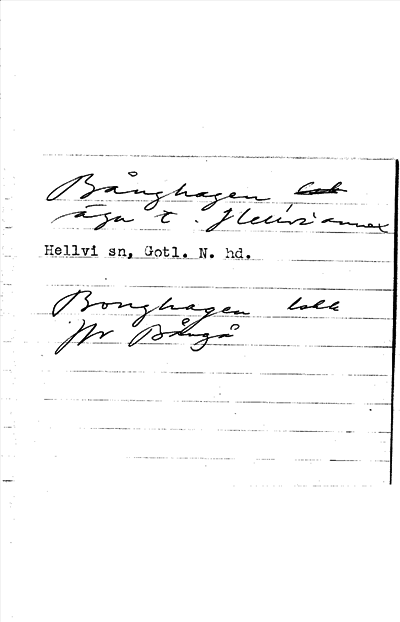 Bånghagen
äga t. Hellvi annex
Hellvi sn, Gotl. N. hd.
Bonghagen
jfr Bångå